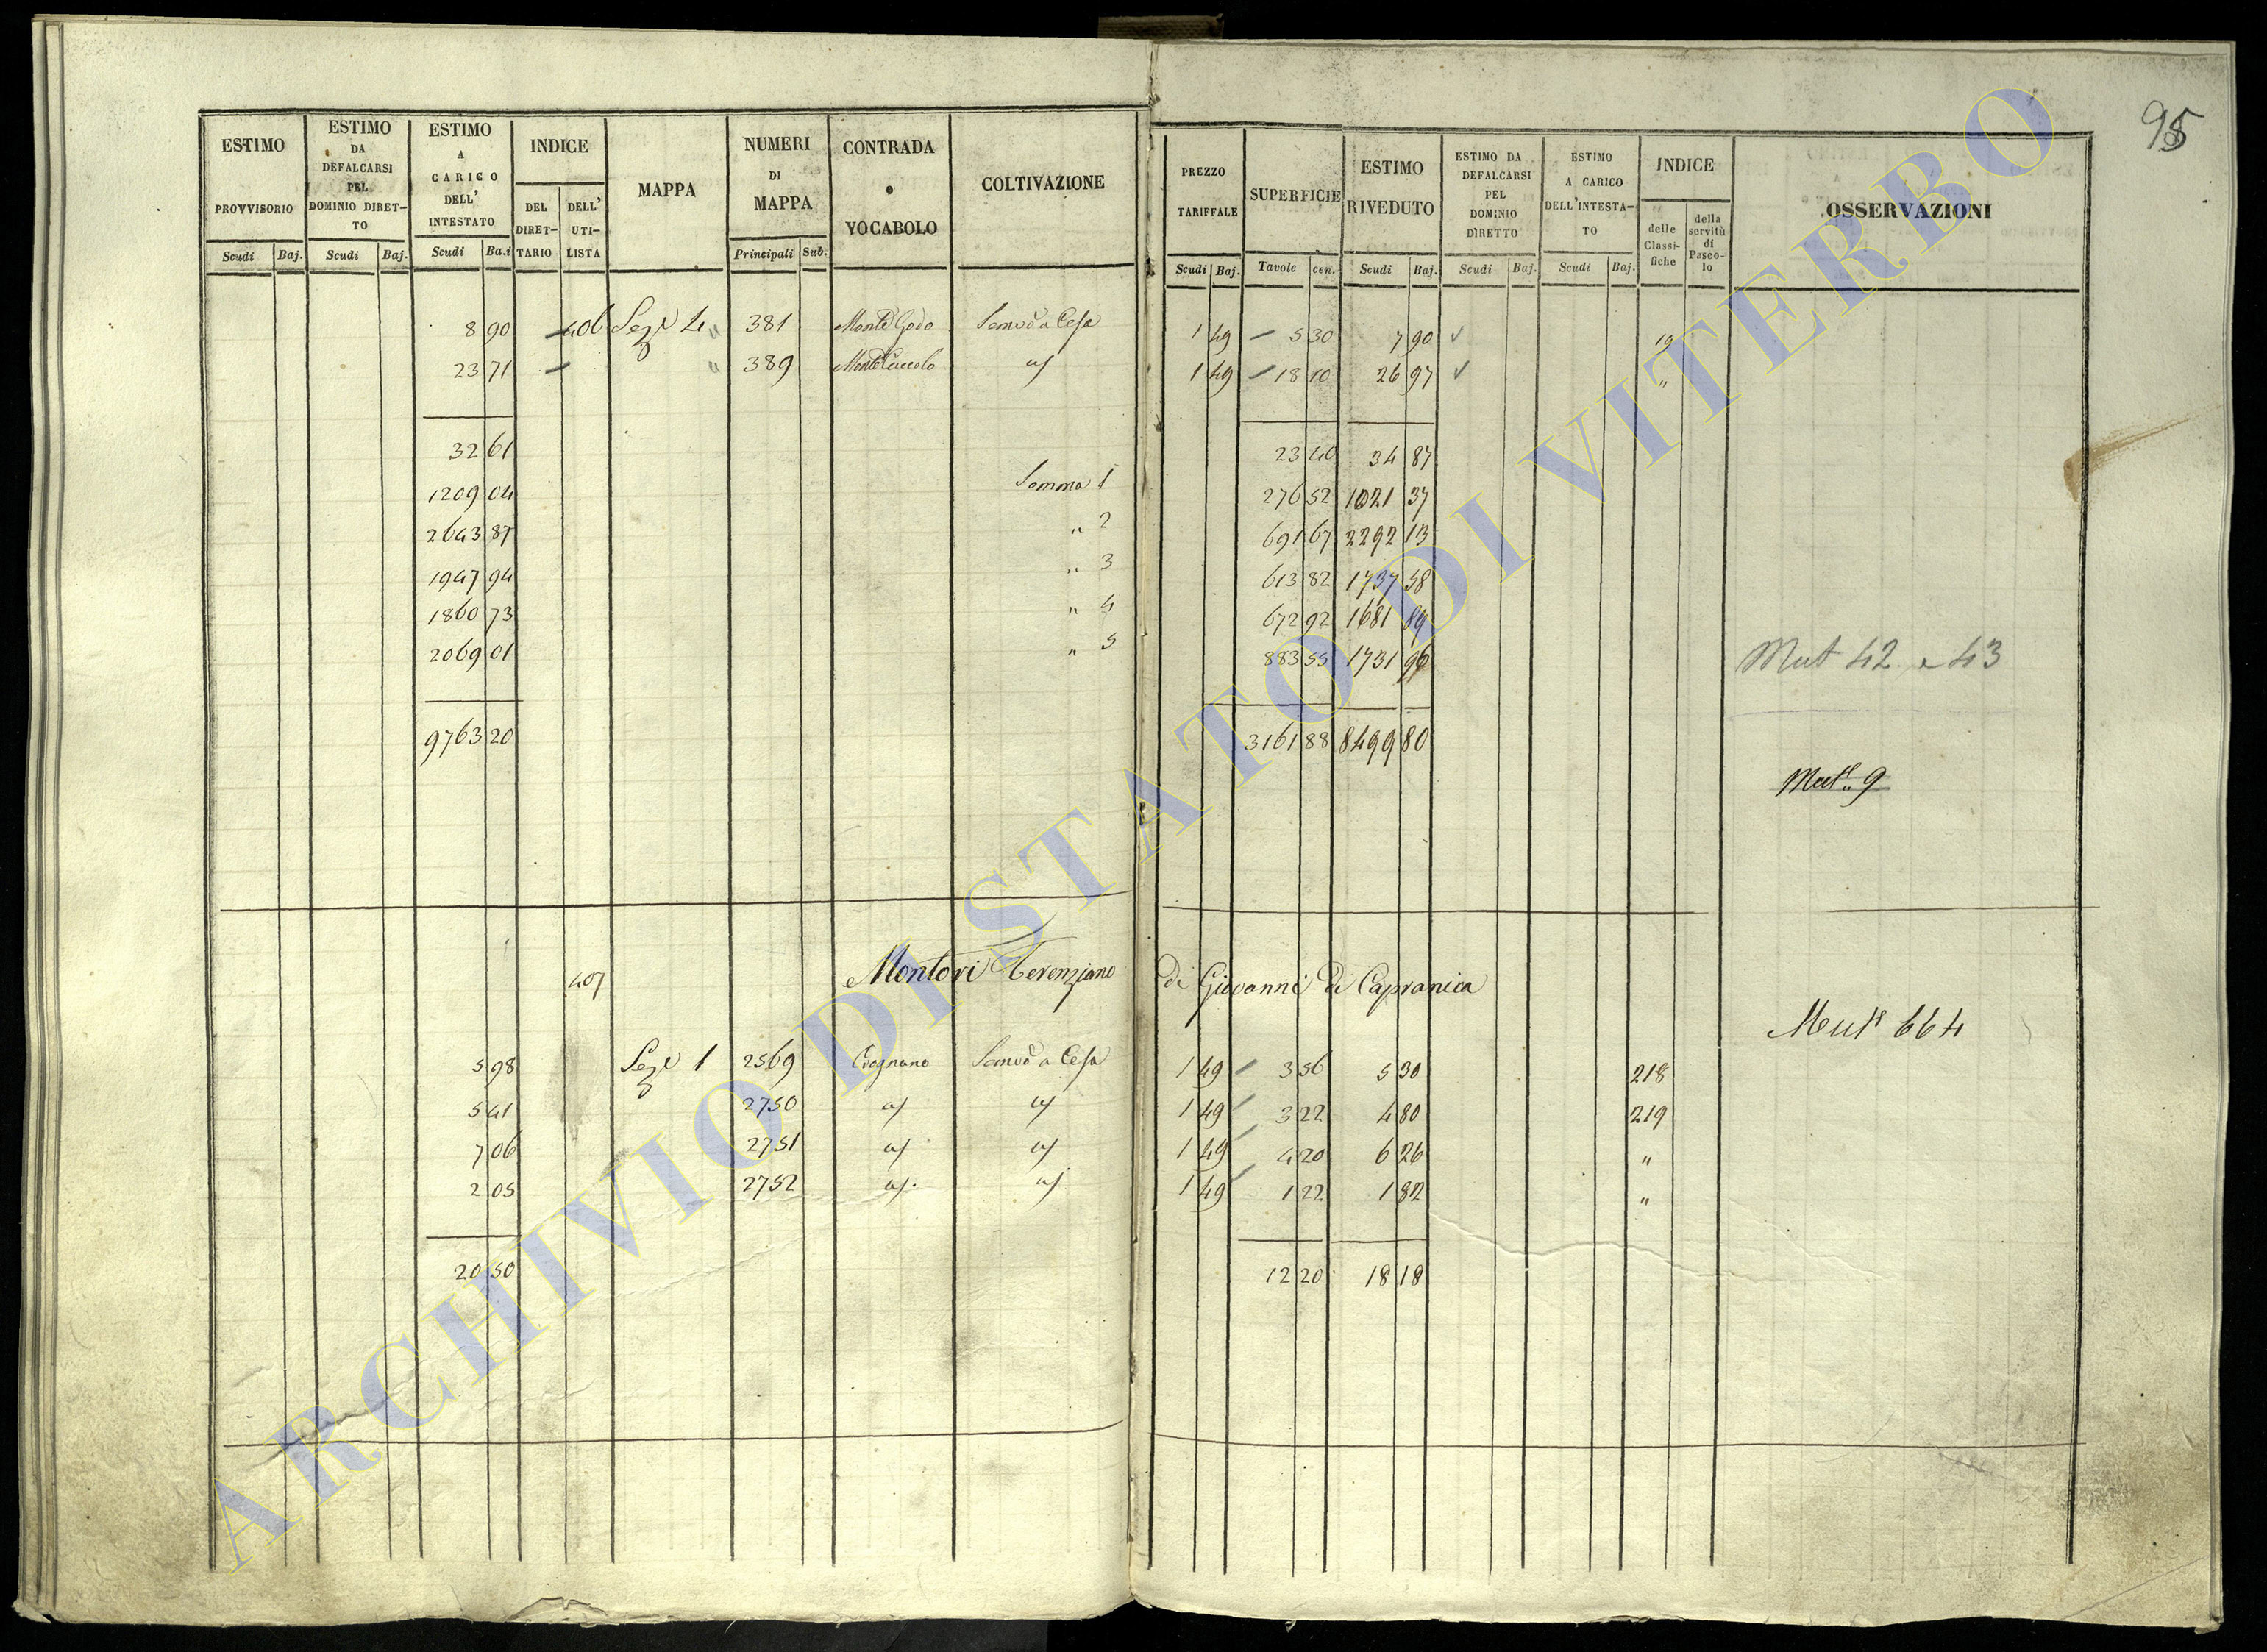 95
ESTIMO PROVVISORIO
ESTIMO DA DEFALCARSI PEL DOMINIO DIRET-TO
ESTIMO A CARICO DELL' INTESTATO
INDICE
DEL DIRET-TARIO
DELL' UTI-LISTA
MAPPA
NUMERI DI MAPPA
CONTRADA o VOCABOLO
COLTIVAZIONE
PREZZO TARIFFALE
SUPERFICIE
ESTIMO RIVEDUTO
ESTIMO DA DEFALCARSI PEL DOMINIO DIRETTO
ESTIMO A CARICO DELL'INTESTA-TO
INDICE
delle Classi-fiche
della servitù di Pasco-lo
OSSERVAZIONI
Scudi Baj. Scudi Baj. Scudi Ba.i Principali Sub. Scudi Baj. Tavole cen. Scudi Baj. Scudi Baj. Scudi Baj.
8 90 406 Sez.e 4 " 381 Monte Godo 1 49 5 30 7 90 19
23 71 " 389 Monte Cuccolo 1 49 18 10 26 97 "
32 61 23 40 34 87
1209 04 Somma 1 276 52 1021 37
2643 87 " 2 691 67 2292 13
1947 94 " 3 613 82 1737 58
1860 73 " 4 672 92 1681 89
2069 01 " 5 883 55 1731 96 Mut 42 e 43
9763 20 3161 88 8499 80
Mut.e 9
407 Montori Terenziano di Giovanni di Capranica
Mut.e 664
5 98 Sez.e 1 2569 1 49 3 56 5 30 218
5 41 2750 1 49 3 22 4 80 219
7 06 2751 1 49 4 20 6 26 "
2 05 2752 1 49 1 22 1 82 "
20 50 12 20 18 18
ARCHIVIO DI STATO DI VITERBO